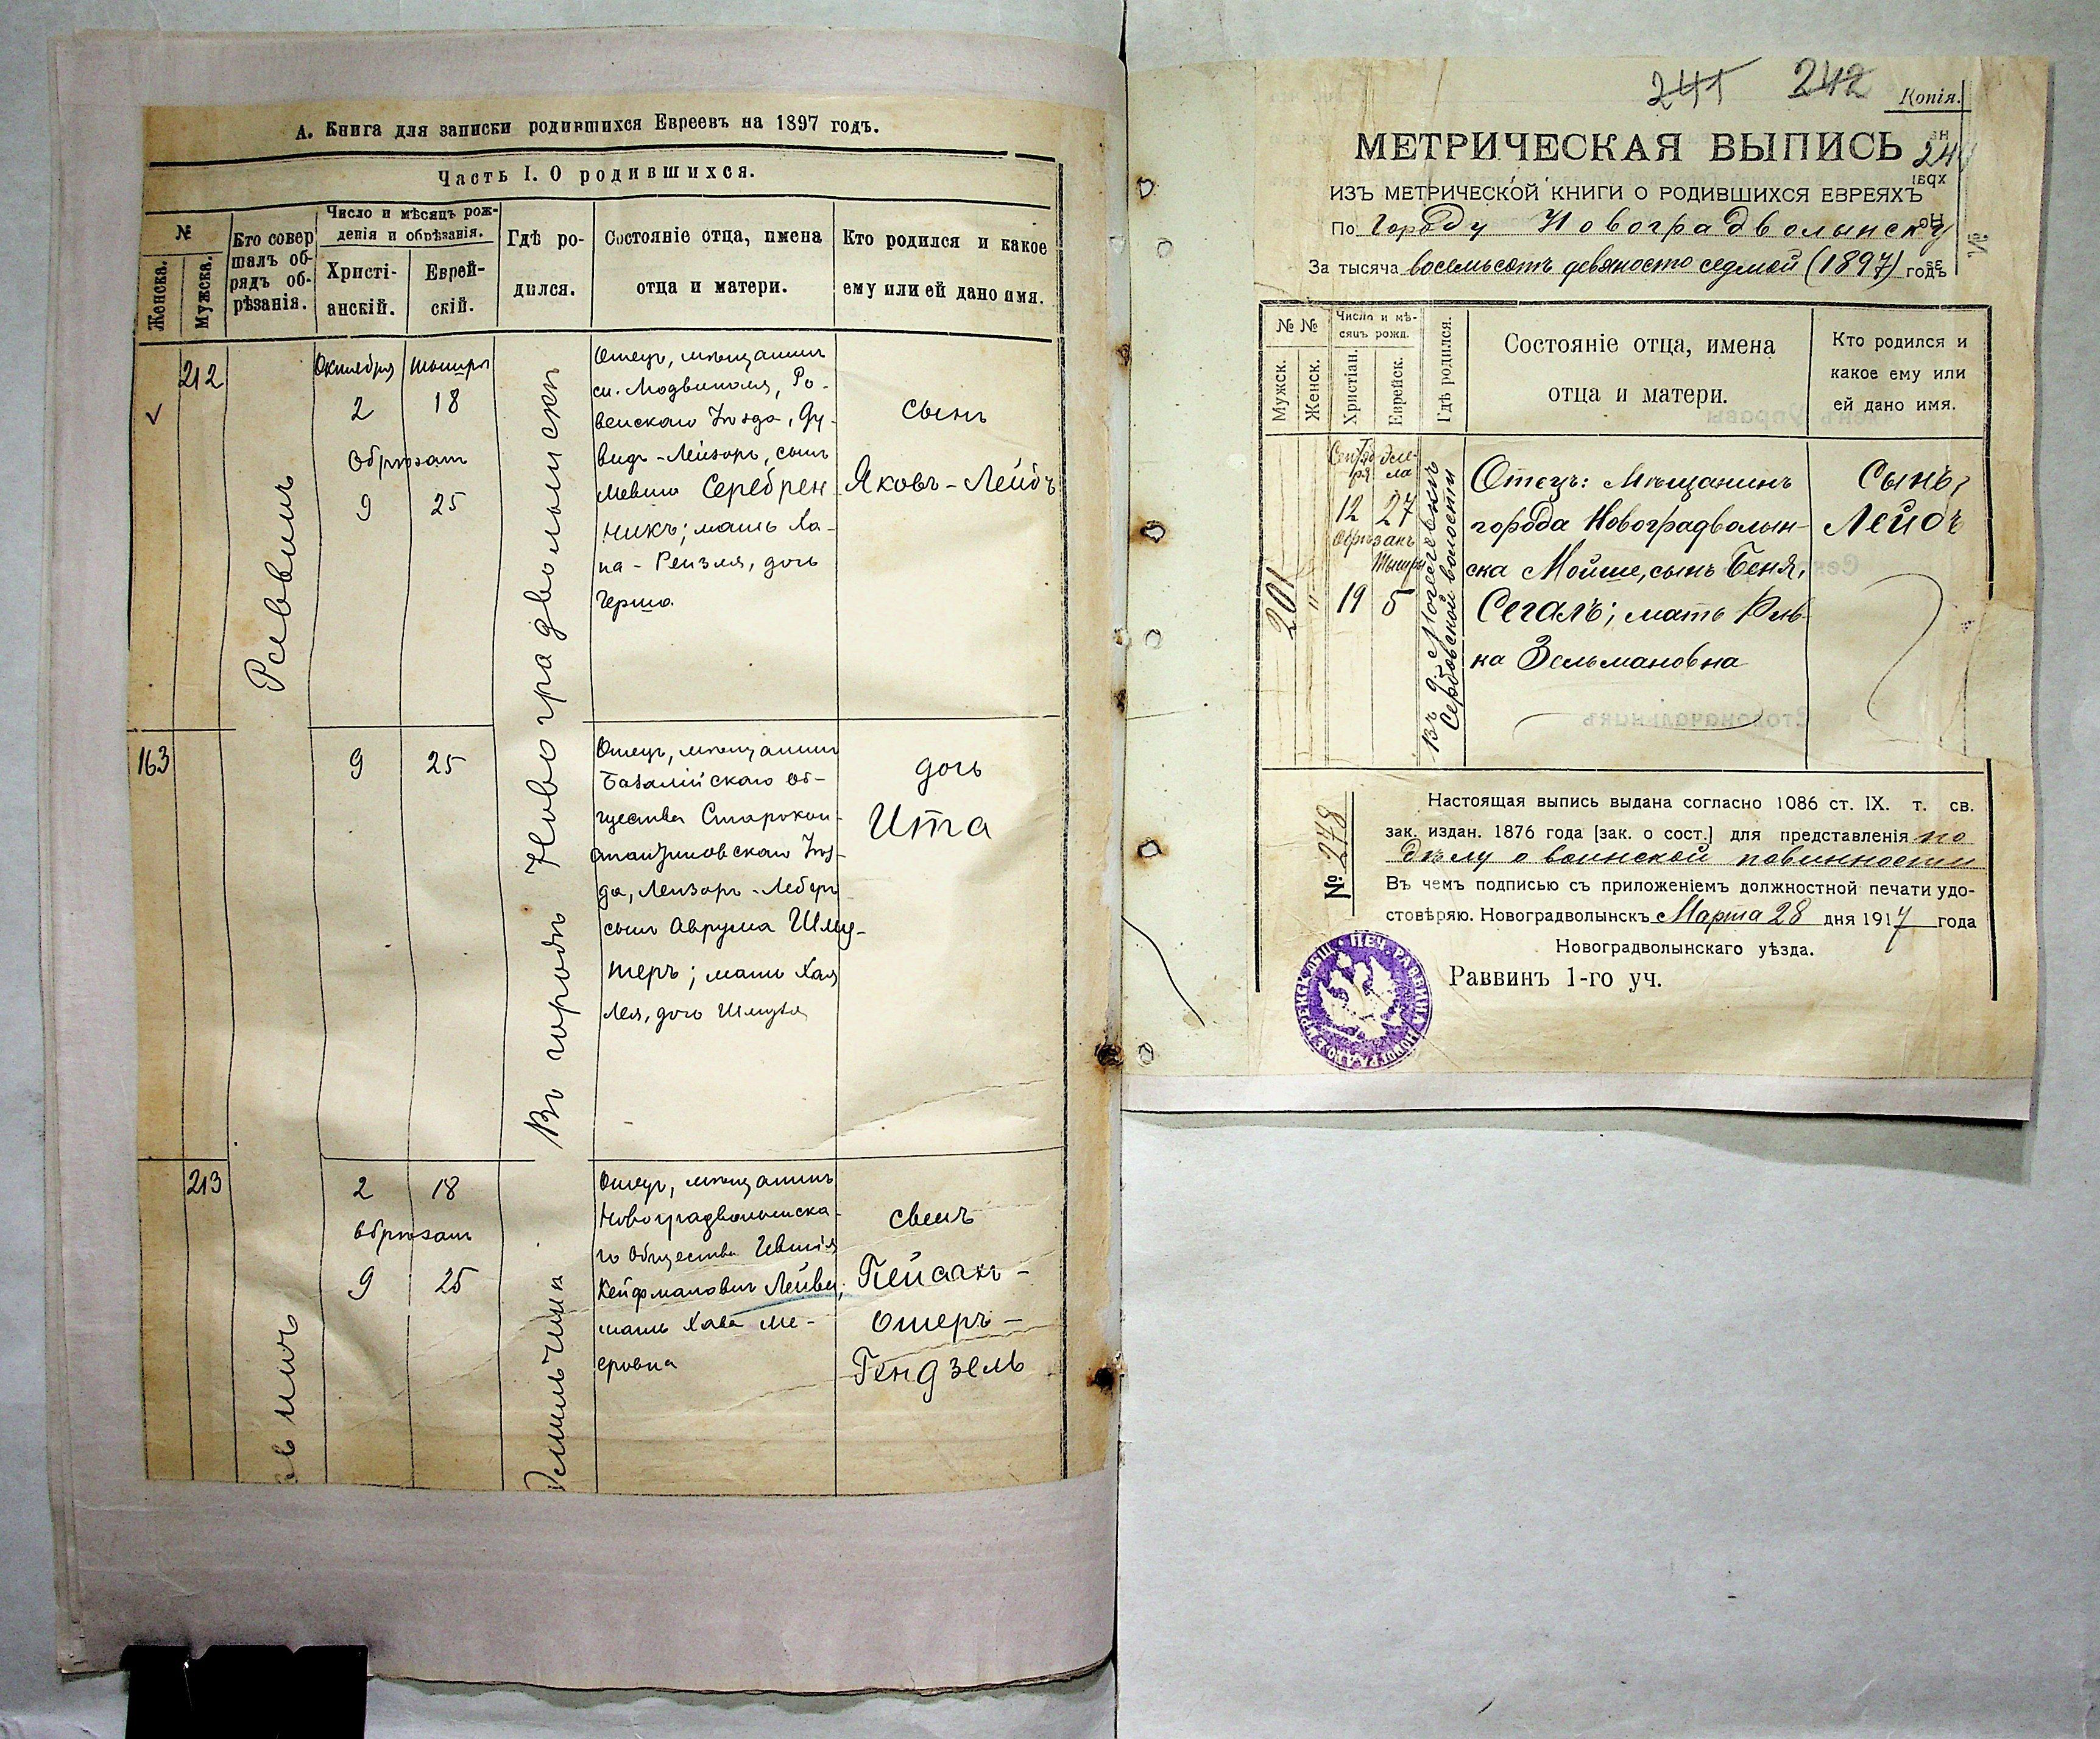 А. Книга для записки родившихся Евреевъ на 1897 годъ.
Часть I. О родившихся.
№
Женска.
Мужска.
Кто совершалъ обрядъ обрѣзанія.
Число и мѣсяцъ рожденія и обрѣзанія.
Христіанскій.
Еврейскій.
Гдѣ родился.
Состояніе отца, имена отца и матери.
Кто родился и какое ему или ей дано имя.
212
Октября
Тышри
2
18
Обрѣзанъ
9
25
Въ городѣ Новоградволынскѣ
Отецъ, мѣщанинъ
Ро-
венскаго Уѣзда, Ду-
видъ-Лейзоръ, сынъ
Серебрен
никъ; мать Ха-
на-Рейзля, дочь
Герша
сынъ
Яковъ-Лейбъ
163
9
25
Отецъ, мѣщанинъ
Базалійскаго об-
щества Старокон-
стантиновскаго Уѣз-
да, Лейзоръ-Леберъ
сынъ Аврума Шму-
теръ; мать Хая
Лея, дочь Шмуля
дочь
Ита
213
2
18
Обрѣзанъ
9
25
Отецъ, мѣщанинъ
Новоградволынска-
го Общества
Кейфмановичъ
мать Хава Ме-
еровна
сынъ
Пейсахъ-
Ошеръ-
Гендзель
241 242
Копія.
МЕТРИЧЕСКАЯ ВЫПИСЬ
ИЗЪ МЕТРИЧЕСКОЙ КНИГИ О РОДИВШИХСЯ ЕВРЕЯХЪ
По Городу Новоградволынску
За тысяча восемьсотъ девяносто седмой (1897) годъ
№ №
Мужск.
Женск.
Число и мѣсяцъ рожд.
Христіан.
Еврейск.
Гдѣ родился.
Состояніе отца, имена
отца и матери.
Кто родился и
какое ему или
ей дано имя.
201
"
Сентября
Элела
12 27
Обрѣзанъ
Тышри
19 5
Сербовской волости
Отецъ: Мѣщанинъ
города Новоградволын-
ска Мойше, сынъ Беня,
Сегалъ; мать Рив-
ка Зельмановна
Сынъ,
Лейбъ
№ 278
Настоящая выпись выдана согласно 1086 ст. IX. т. св.
зак. издан. 1876 года [зак. о сост.] для представленія по
дѣлу о воинской повинности
Въ чемъ подписью съ приложеніемъ должностной печати удо-
стовѣряю. Новоградволынскъ Марта 28 дня 1917 года
Новоградволынскаго уѣзда.
Раввинъ 1-го уч.